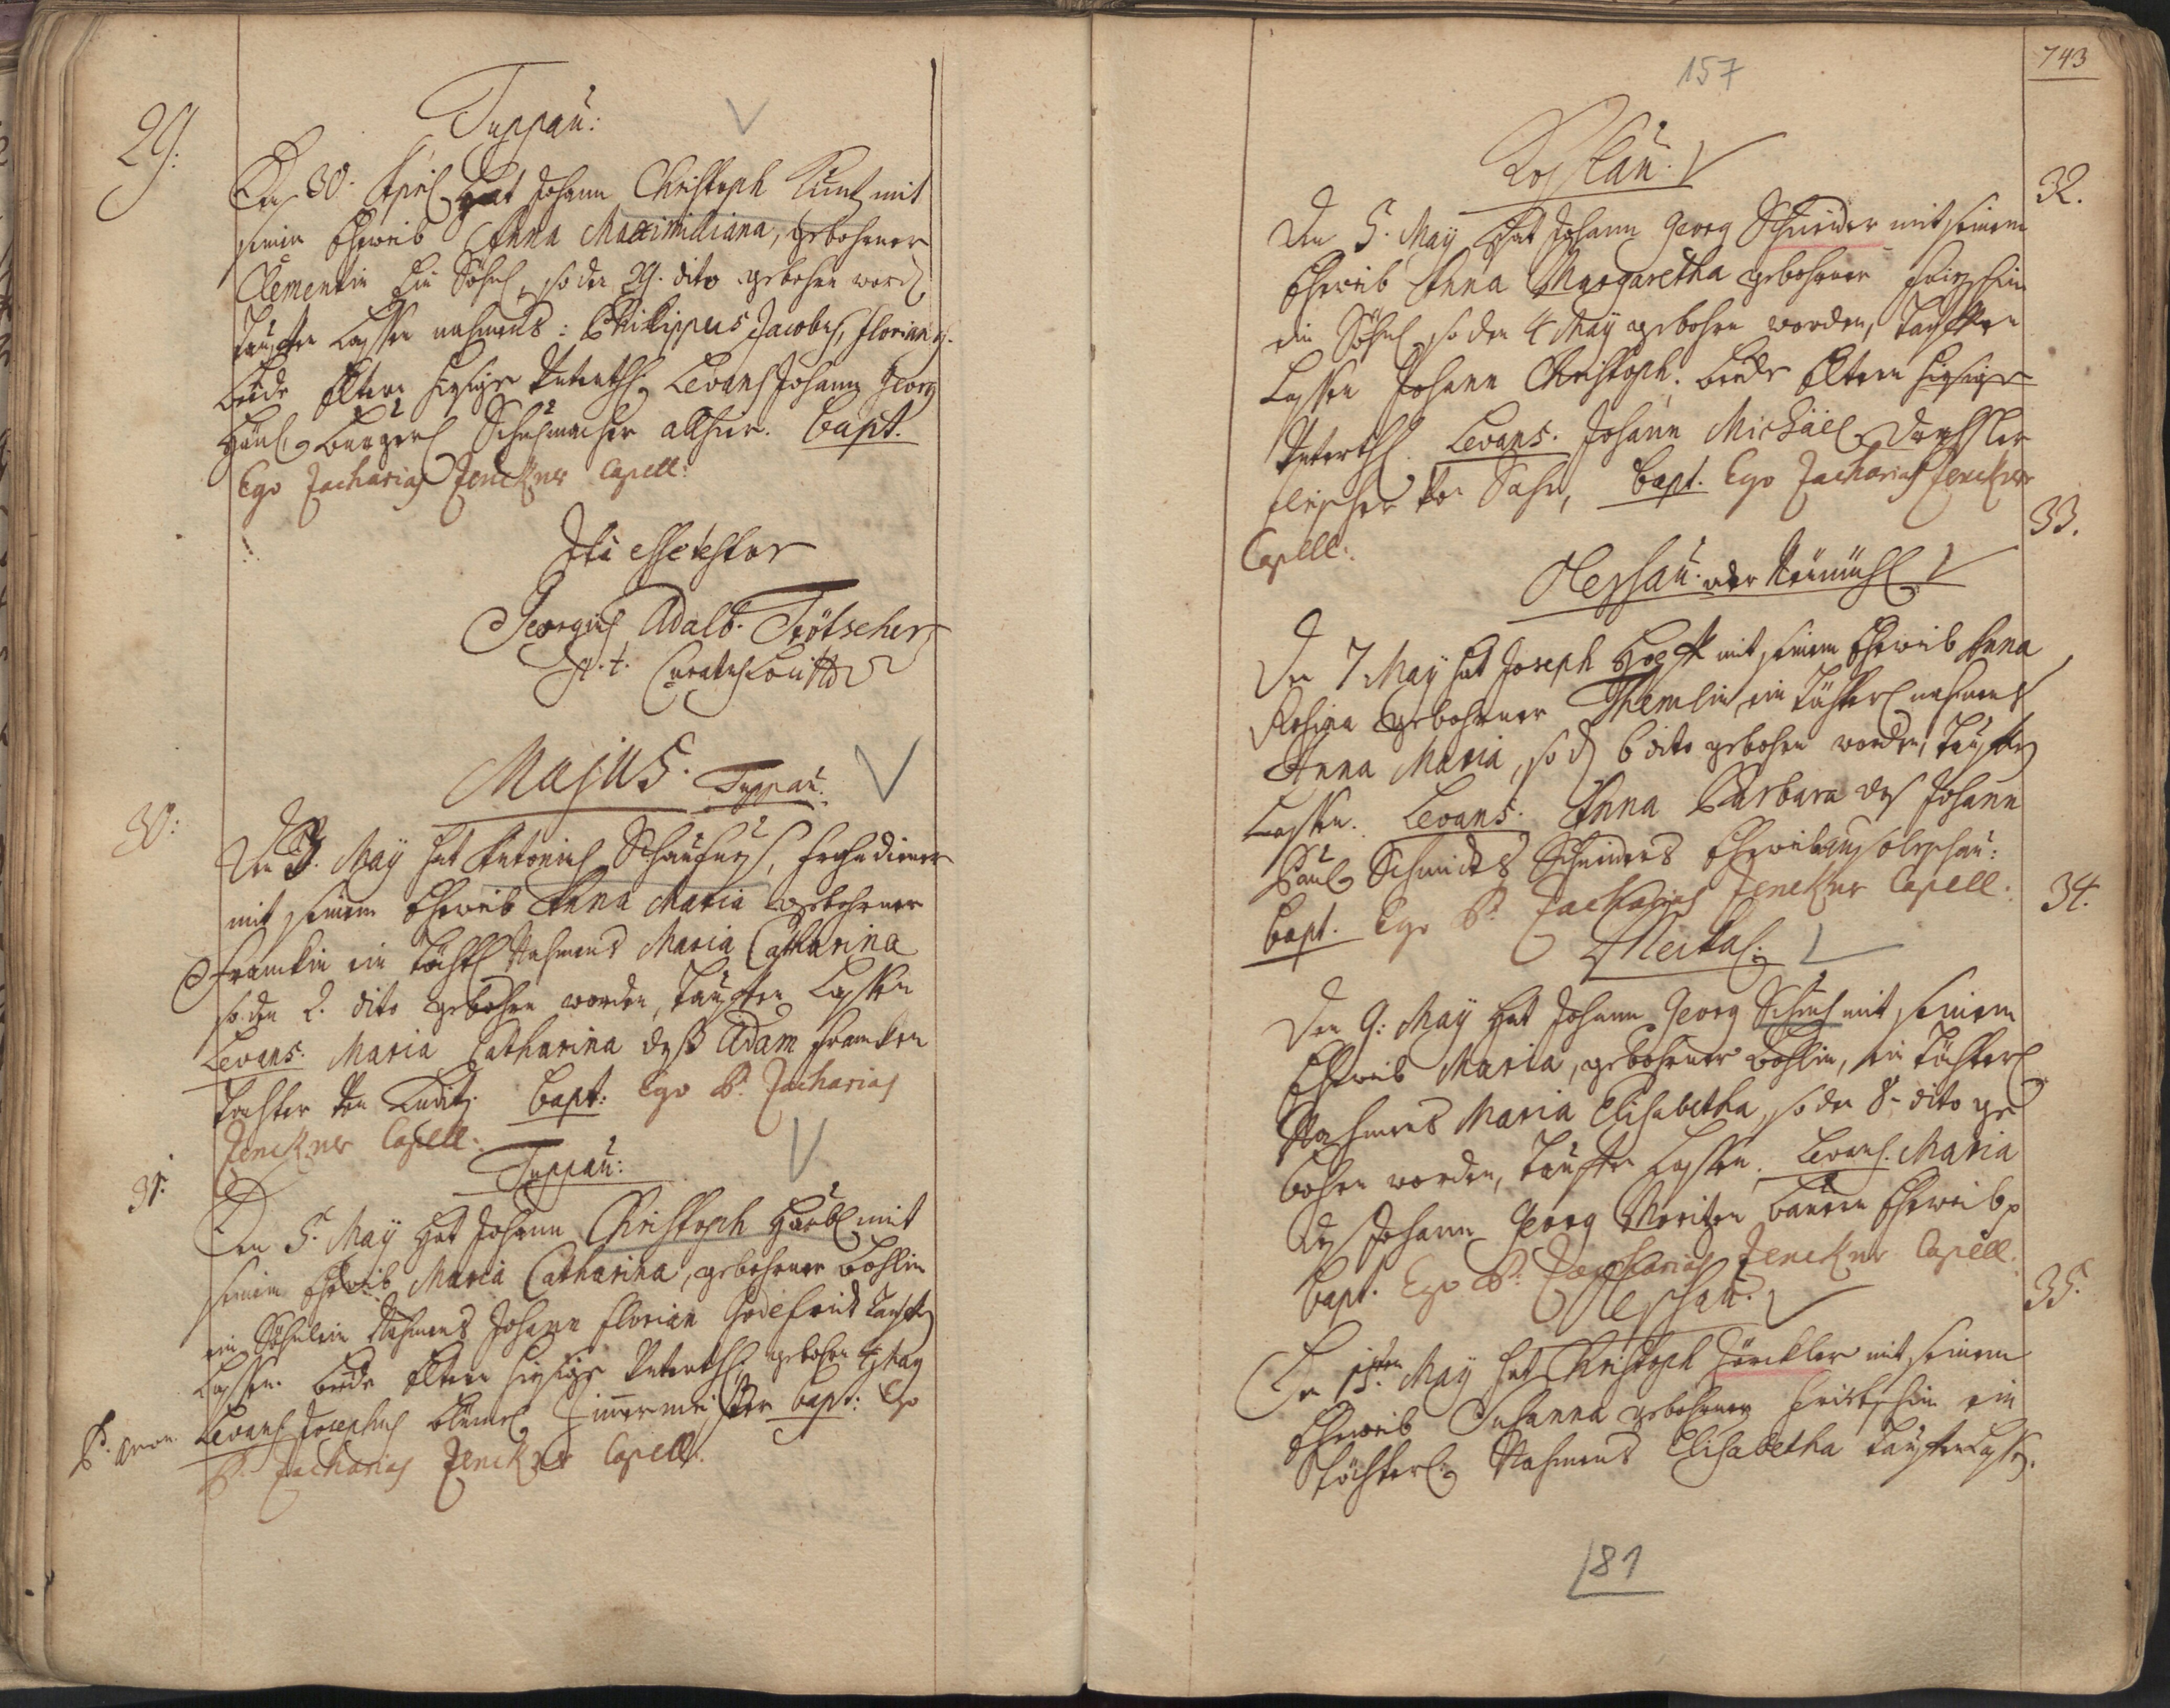 29.
Duppau:
Den 30. April Hat Johann Christoph Kuntz mit
seinem Eheweib Anna Maximiliana, gebohrner
Clementin Ein Söhnl, so den 29. dito gebohrn word.
Tauffen Lassen nahmens: Philippus Jacobus, Florian
beide Eltern hiesige Unterth. Levans Johann Georg
burgerl Schuhmacher allhier. bapt.
Ego Zacharias Jenckner Capell:
Ita est
Georgius Adalb. Trötscher
p.t. Curatus
Majus. Duppau.
30:
Den 3. May hat Antonius
mit seinem Eheweib Anna Maria gebohrner
Franckin ein Töchterl Nahmens Maria Catharina
so den 2. dito gebohrn worden, Tauffen Lassen
Levans. Maria Catharina deß Adam Francken
Tochter von Luditz. bapt: Ego P. Zacharias
Jenckner Capell.
31.
Duppau:
Den 5. May Hat Johann Christoph mit
seinem Eheweib Maria Catharina, gebohrner
ein Söhnlein Nahmens Johann Florian Godefrid Tauffen
Lassen. beide Eltern hiesige Unterth. gebohrn 4 May
Levans Josephus Zimmermeister bapt: Ego
P. Zacharias Jenckner Capell.
743
157
Koslau.
32.
Den 5. May Hat Johann Georg Schneider mit seinem
Eheweib Anna Margaretha gebohrner
ein Söhnl so den 4 May gebohrn worden, Tauffen
Lassen Johann Christoph. beide Eltern hiesige
Unterth. Levans. Johann Michäel
bapt. Ego Zacharias Jenckner
Capell:
33.
Oleschau: oder Neümühl
Den 7 May hat Joseph mit seinem Eheweib Anna
Rosina gebohrner ein Töchterl nahmens
Anna Maria, so d. 6 dito gebohrn worden, Tauffen
Lassen. Levans. Anna Barbara des Johann
Paul Schmidts Schneiders Eheweib aus Oleschau:
bapt. Ego P. Zacharias Jenckner Capell.
34.
Den 9: May Hat Johann Georg Schuh mit seinem
Eheweib Maria, gebohrner ein Töchterl
Nahmens Maria Elisabetha, so den 8. dito ge
bohrn worden, Tauffen Lassen. Levans. Maria
des Johann Georg Moritzen Bauern Eheweib
bapt. Ego P. Zacharias Jenckner Capell.
35.
Oleschau.
Den 15ten May hat Christoph mit seinem
Eheweib Susanna gebohrner ein
Töchterl Nahmens Elisabetha Tauffen Lassen.
181